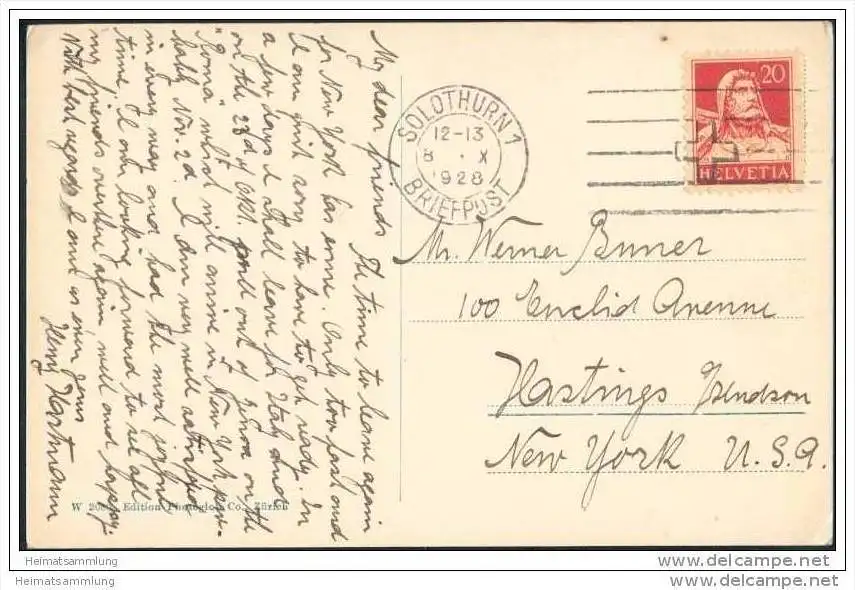 My dear friends The time to leave again
for New York has come. Only too fast and
I am quit sorry to have to get ready. In
a few days I shall leave for Italy and
on the 23d of Okt. pull out of Genoa on the
"Roma" which will arrive in New York
bably Nov. 2d. I am very well satisfied
in every way and had the most joyful
time. I am looking forward to see all
my friends over there again well and happy.
With best regards I am as ever yours
Henry Hartmann
SOLOTHURN 1
12-13
8 . X
1928
BRIEFPOST
20
HELVETIA
Mr. Werner
100 Euclid Avenue
Hastings Hudson
New York U.S.A.
W Edition Photoglob Co., Zürich
www.delcampe.net
Heimatsammlung
www.delcampe.net
Heimatsammlung